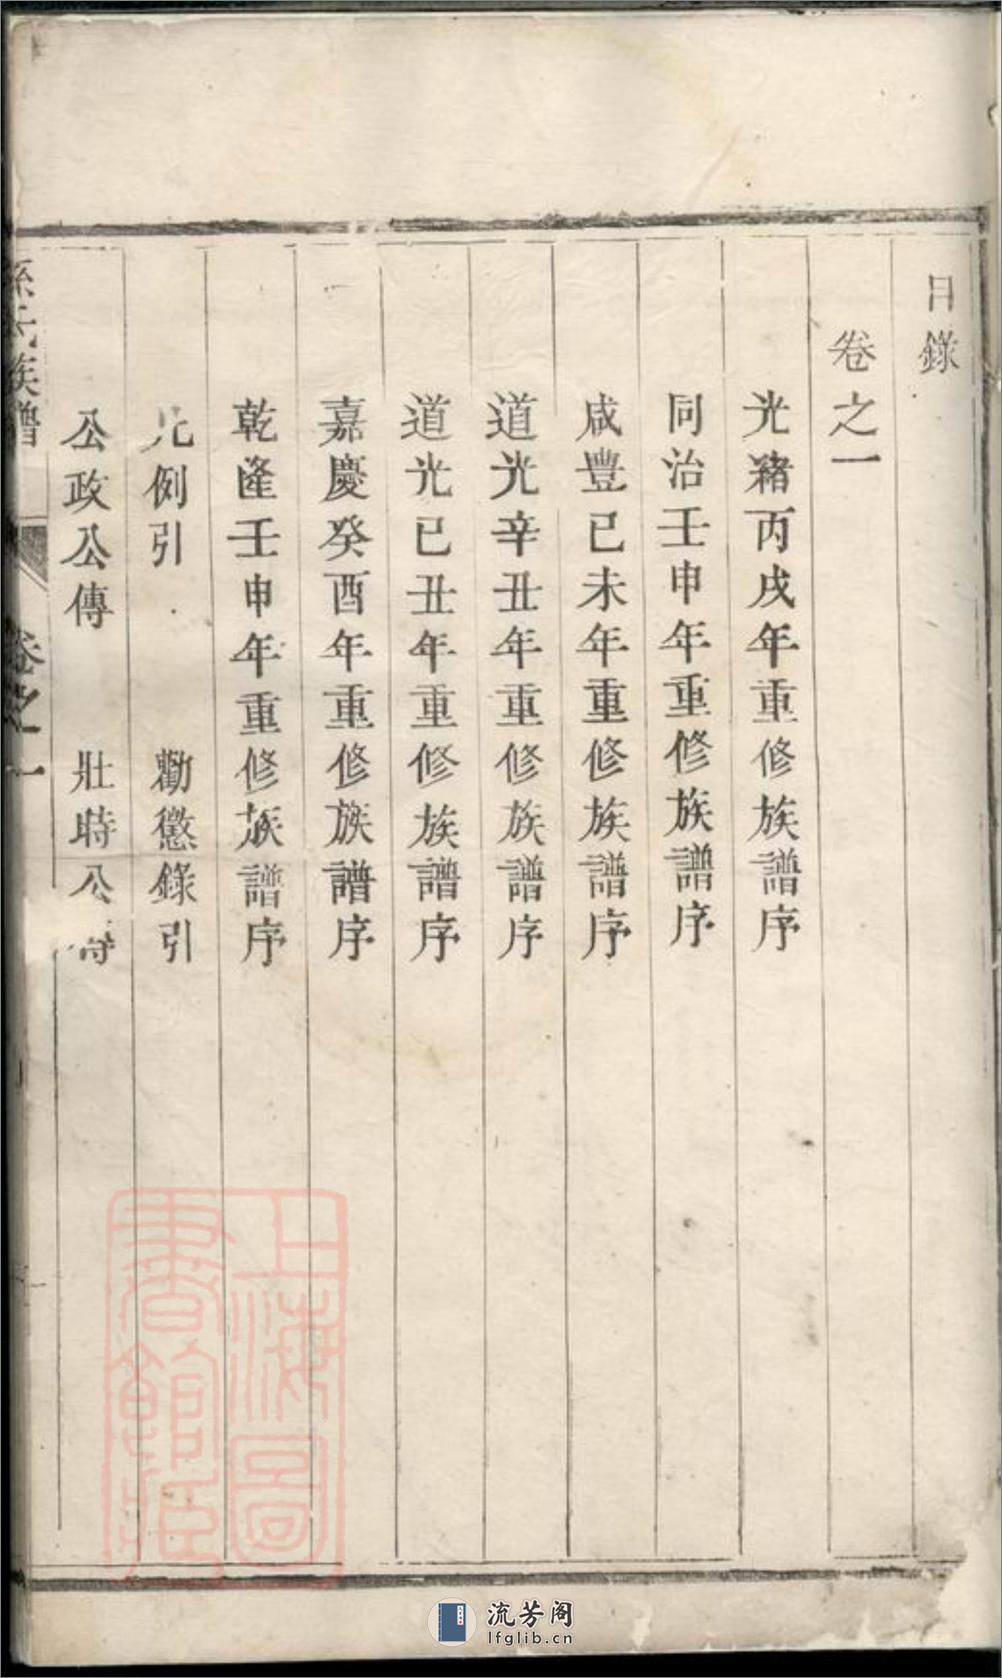 目錄
卷之一
光緒丙戌年重修族譜序
同治壬申年重修族譜序
咸豐己未年重修族譜序
道光辛丑年重修族譜序
道光己丑年重修族譜序
嘉慶癸酉年重修族譜序
乾隆壬申年重修族譜序
凡例引 勸懲錄引
公政公傳 壯時公傳
孫氏族譜 卷之一
上海圖書館藏
流芳阁
lfglib.cn